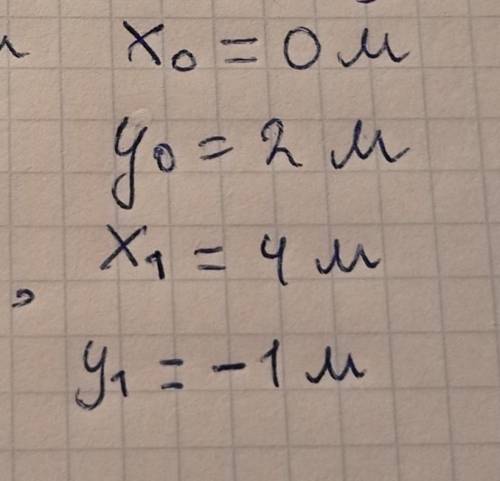 x₀ = 0 м
y₀ = 2 м
x₁ = 4 м
,
y₁ = -1 м